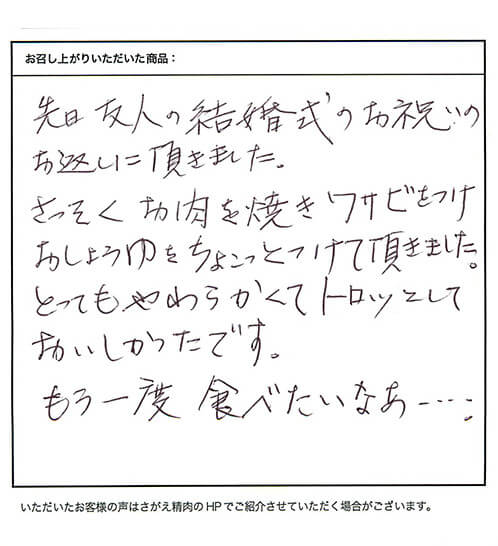 お召し上がりいただいた商品：
先日 友人の結婚式のお祝いの
お返しに頂きました。
さっそくお肉を焼きワサビをつけ
おしょうゆをちょこっとつけて頂きました。
とってもやわらかくてトロッとして
おいしかったです。
もう一度 食べたいなあ----・
いただいたお客様の声はさがえ精肉のHPでご紹介させていただく場合がございます。